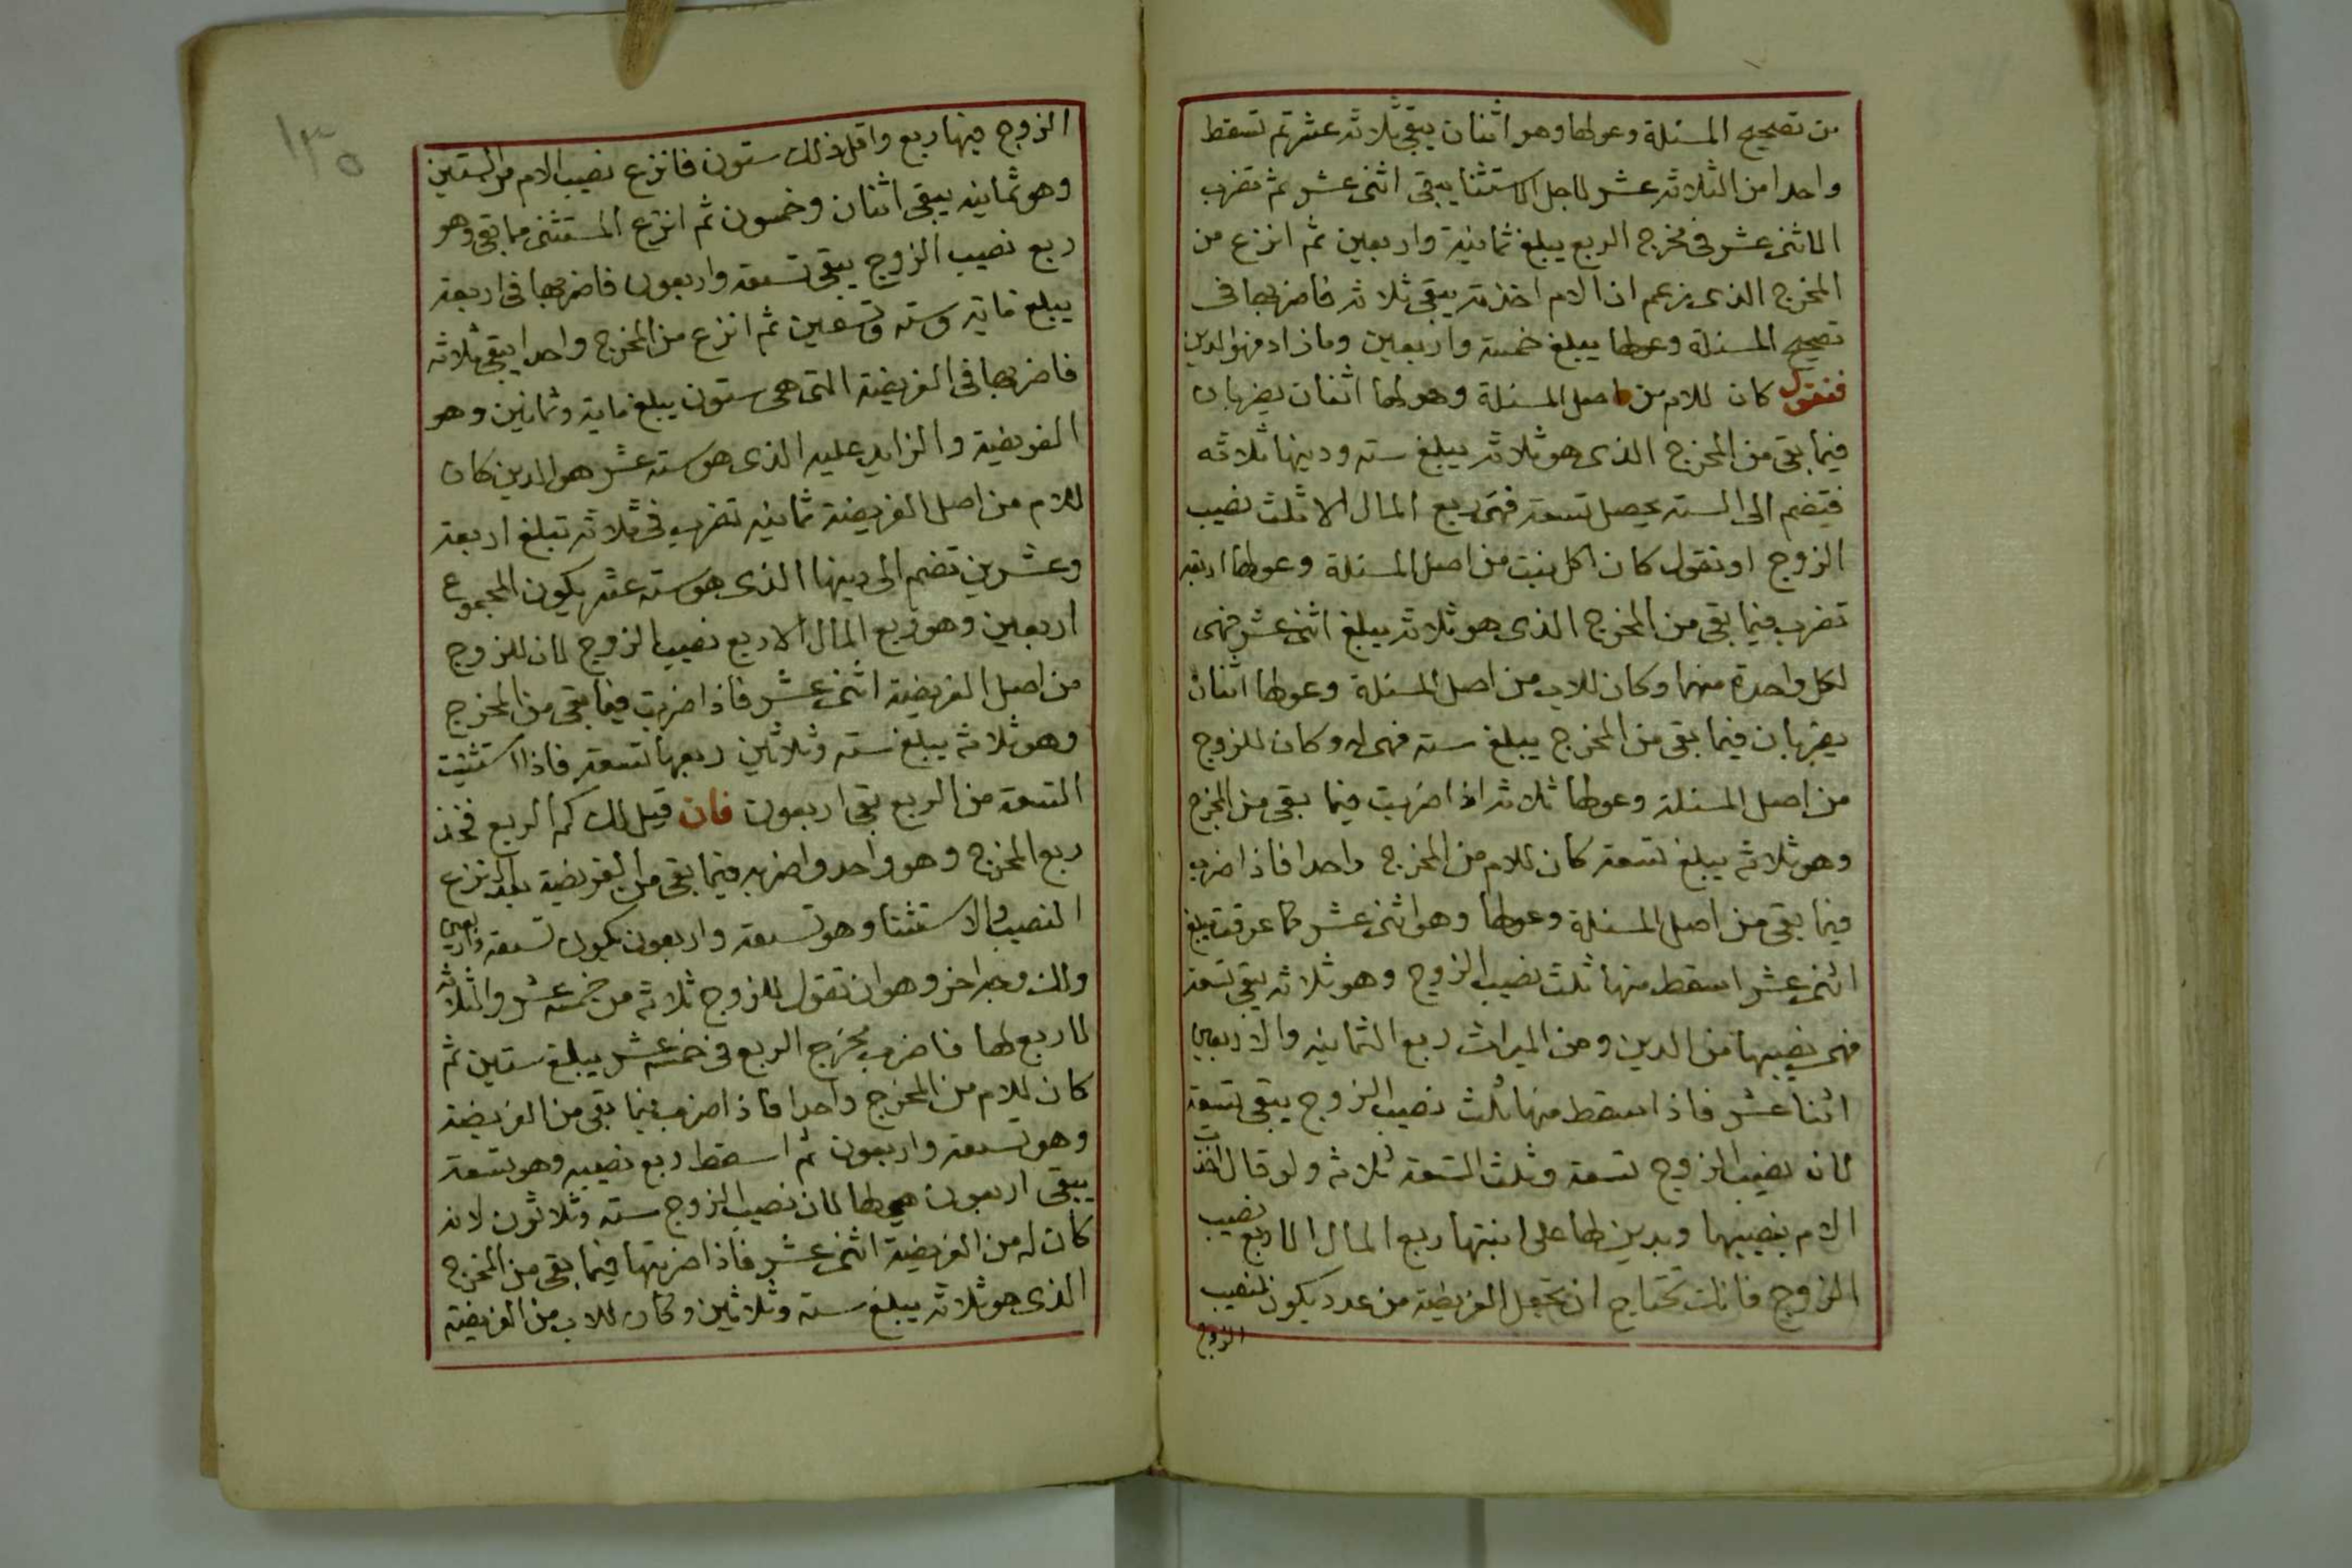 من تصحيح المسئلة وعولها وهو اثنان يبقى ثلاثه عشر ثم تسقط
واحدا من الثلاثه عشر لاجل الاستثنا يبقى اثنى عشر ثم تضرب
الاثنى عشر فى مخرج الربع يبلغ ثمانية واربعين ثم انزع من
المخرج الذى زعم ان الام اخذته يبقى ثلاثه فاضربها فى
تصحيح المسئلة وعولها يبلغ خمسة واربعين وما زاد فهو الدين
فنقول كان للام من اصل المسئلة وعولها اثنان يضربان
فيما بقى من المخرج الذى هو ثلاثه يبلغ سته ودينها ثلاثه
فتضم الى السته يحصل تسعه فهى ربع المال الا ثلث نصيب
الزوج او نقول كان لكل بنت من اصل المسئلة وعولها اربعه
تضرب فيما بقى من المخرج الذى هو ثلاثه يبلغ اثنى عشر فهى
لكل واحدة منهما وكان للاب من اصل المسئلة وعولها اثنان
يضربان فيما بقى من المخرج يبلغ سته فهى له وكان للزوج
من اصل المسئلة وعولها ثلاثه اذا ضربت فيما بقى من المخرج
وهو ثلاثه يبلغ تسعه كان للام من المخرج واحدا فاذا ضرب
فيما بقى من اصل المسئلة وعولها وهو اثنى عشر كما عرفت يبلغ
اثنى عشر اسقط منها ثلث نصيب الزوج وهو ثلاثه يبقى تسعه
فهى نصيبها من الدين ومن الميراث ربع الثمانيه والاربعين
اثنا عشر فاذا سقط منها ثلث نصيب الزوج يبقى تسعه
لان نصيب الزوج تسعه وثلث التسعه ثلاثه ولو قال اخذت
الام بنصيبها وبدين لها على ابنتها ربع المال الا ربع نصيب
الزوج فانك تحتاج ان تجعل الفريضة من عدد يكون لنصيب
الزوج
١٣٥
الزوج فيها ربع واقل ذلك ستون فانزع نصيب الام من الستين
وهو ثمانيه يبقى اثنان وخمسون ثم انزع المستثنى مما بقى وهو
ربع نصيب الزوج يبقى تسعه واربعون فاضربها فى اربعه
يبلغ مايه وسته وتسعين ثم انزع من المخرج واحدا يبقى ثلاثه
فاضربها فى الفريضة التى هى ستون يبلغ مايه وثمانين وهو
الفريضة والزايد عليه الذى هو سته عشر هو الدين كان
للام من اصل الفريضة ثمانيه تضرب فى ثلاثه تبلغ اربعة
وعشرين تضم الى دينها الذى هو سته عشر يكون المجموع
اربعين وهو ربع المال الا ربع نصيب الزوج لان للزوج
من اصل الفريضة اثنى عشر فاذا ضربت فيما بقى من المخرج
وهو ثلاثه يبلغ سته وثلاثين ربعها تسعه فاذا استثنيت
التسعه من الربع بقى اربعون فان قيل لك كم الربع فخذ
ربع المخرج وهو واحد واضربه فيما بقى من الفريضة بعد نزع
النصيب والاستثنا وهو تسعه واربعون يكون تسعه واربعين
ولك وجه اخر وهو ان تقول للزوج ثلاثه من خمسه عشر والثلاثه
لا ربع لها فاضرب مخرج الربع فى خمسه عشر يبلغ ستين ثم
كان للام من المخرج واحدا فاذا ضرب فيما بقى من الفريضة
وهو تسعه واربعون ثم اسقط ربع نصيبه وهو تسعة
يبقى اربعون هى لها لان نصيب الزوج سته وثلاثون لانه
كان له من الفريضة اثنى عشر فاذا ضربتها فيما بقى من المخرج
الذى هو ثلاثه يبلغ سته وثلاثين وكان للاب من الفريضة